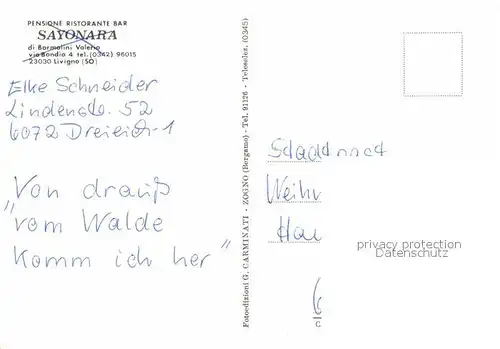 PENSIONE RISTORANTE BAR
SAYONARA
di Bormolini Valerio
via Bondio 4 tel. (0342) 96015
23030 Livigno (SO)
Elke Schneider
Lindenstr. 52
6072 Dreieich-1
Von drauß
"vom Walde
komm ich her"
Fotoedizioni G. CARMINATI - ZOGNO (Bergamo) - Tel. 91126 - Teleselez. (0345)
Weihn
Hau
privacy protection
Datenschutz